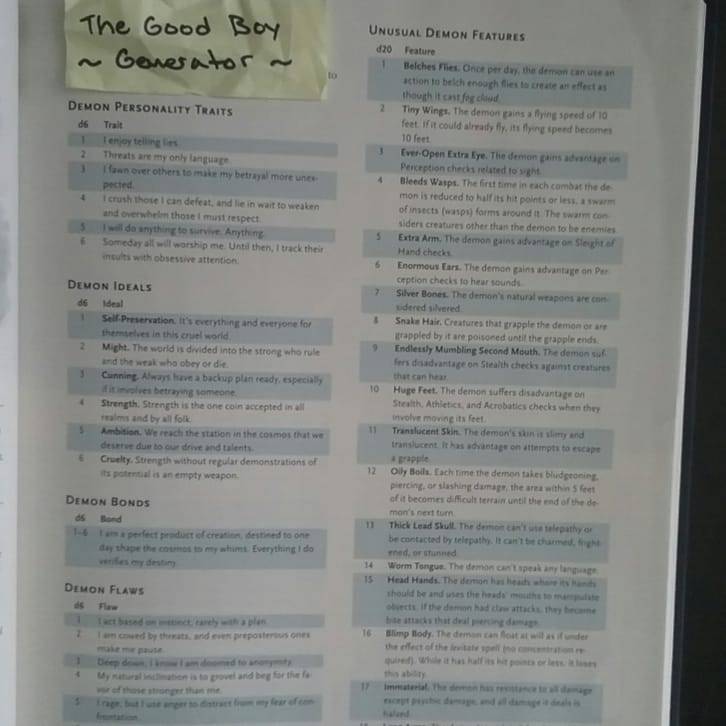 The Good Boy
~ Generator ~
to
DEMON PERSONALITY TRAITS
d6 Trait
1 I enjoy telling lies.
2 Threats are my only language.
3 I fawn over others to make my betrayal more unex-
pected.
4 I crush those I can defeat, and lie in wait to weaken
and overwhelm those I must respect.
5 I will do anything to survive. Anything.
6 Someday all will worship me. Until then, I track their
insults with obsessive attention.
DEMON IDEALS
d6 Ideal
1 Self-Preservation. It's everything and everyone for
themselves in this cruel world.
2 Might. The world is divided into the strong who rule
and the weak who obey or die.
3 Cunning. Always have a backup plan ready, especially
if it involves betraying someone.
4 Strength. Strength is the one coin accepted in all
realms and by all folk.
5 Ambition. We reach the station in the cosmos that we
deserve due to our drive and talents.
6 Cruelty. Strength without regular demonstrations of
its potential is an empty weapon.
DEMON BONDS
d6 Bond
1–6 I am a perfect product of creation, destined to one
day shape the cosmos to my whims. Everything I do
verifies my destiny.
DEMON FLAWS
d6 Flaw
1 I act based on instinct, rarely with a plan.
2 I am cowed by threats, and even preposterous ones
make me pause.
3 Deep down, I know I am doomed to anonymity.
4 My natural inclination is to grovel and beg for the fa-
vor of those stronger than me.
5 I rage, but I use anger to distract from my fear of con-
frontation.
UNUSUAL DEMON FEATURES
d20 Feature
1 Belches Flies. Once per day, the demon can use an
action to belch enough flies to create an effect as
though it cast fog cloud.
2 Tiny Wings. The demon gains a flying speed of 10
feet. If it could already fly, its flying speed becomes
10 feet.
3 Ever-Open Extra Eye. The demon gains advantage on
Perception checks related to sight.
4 Bleeds Wasps. The first time in each combat the de-
mon is reduced to half its hit points or less, a swarm
of insects (wasps) forms around it. The swarm con-
siders creatures other than the demon to be enemies.
5 Extra Arm. The demon gains advantage on Sleight of
Hand checks.
6 Enormous Ears. The demon gains advantage on Per-
ception checks to hear sounds.
7 Silver Bones. The demon's natural weapons are con-
sidered silvered.
8 Snake Hair. Creatures that grapple the demon or are
grappled by it are poisoned until the grapple ends.
9 Endlessly Mumbling Second Mouth. The demon suf-
fers disadvantage on Stealth checks against creatures
that can hear.
10 Huge Feet. The demon suffers disadvantage on
Stealth, Athletics, and Acrobatics checks when they
involve moving its feet.
11 Translucent Skin. The demon's skin is slimy and
translucent. It has advantage on attempts to escape
a grapple.
12 Oily Boils. Each time the demon takes bludgeoning,
piercing, or slashing damage, the area within 5 feet
of it becomes difficult terrain until the end of the de-
mon's next turn.
13 Thick Lead Skull. The demon can't use telepathy or
be contacted by telepathy. It can't be charmed, fright-
ened, or stunned.
14 Worm Tongue. The demon can't speak any language.
15 Head Hands. The demon has heads where its hands
should be and uses the heads' mouths to manipulate
objects. If the demon had claw attacks, they become
bite attacks that deal piercing damage.
16 Blimp Body. The demon can float at will as if under
the effect of the levitate spell (no concentration re-
quired). While it has half its hit points or less, it loses
this ability.
17 Immaterial. The demon has resistance to all damage
except psychic damage, and all damage it deals is
halved.